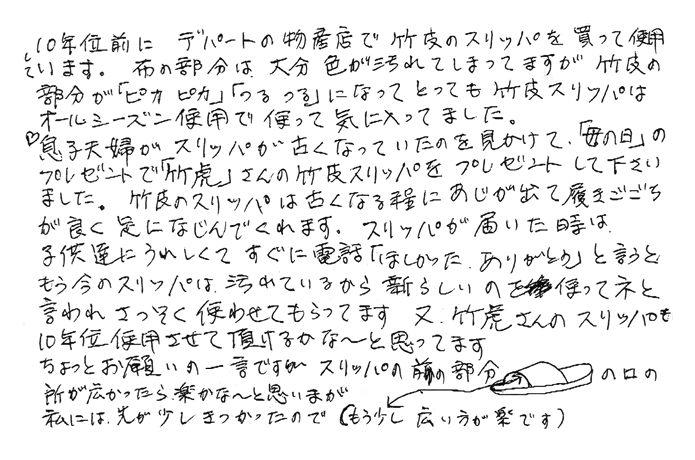 10年位前に デパートの物産店で竹皮のスリッパを買って使用
しています。 布の部分は大分色が汚れてしまってますが竹皮の
部分が「ピカピカ」「つるつる」になってとっても竹皮スリッパは
オールシーズン使用で使って気に入ってました。
♡息子夫婦がスリッパが古くなっていたのを見かけて、「母の日」の
プレゼントで「竹虎」さんの竹皮スリッパをプレゼントして下さい
ました。 竹皮のスリッパは古くなる程にあじが出て履きごごち
が良く足になじんでくれます。 スリッパが届いた時は、
子供達にうれしくてすぐに電話「ほしかった、ありがとう」と言うと
もう今のスリッパは、汚れているから新らしいのを使ってネと
言われさっそく使わせてもらってます 又、竹虎さんのスリッパも
10年位使用させて頂けるかな〜と思ってます
ちょっとお願いの一言ですが スリッパの前の部分 の口の
所が広かったら楽かな〜と思いまが
私には、先が少しきつかったので (もう少し広い方が楽です)